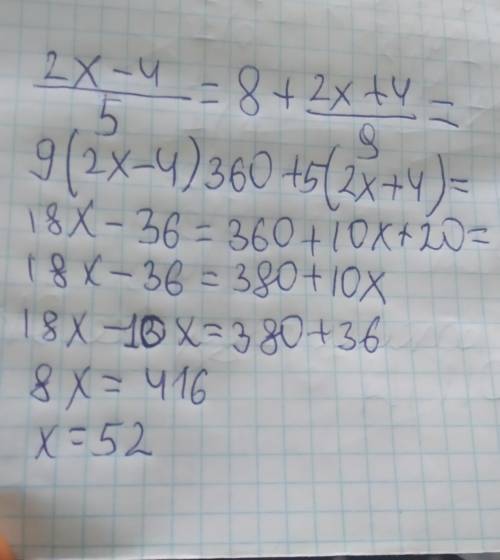 (2x-4)/5 = 8 + (2x+4)/9 =
9(2x-4)360+5(2x+4)=
18x-36=360+10x+20=
18x-36=380+10x
18x-10x=380+36
8x=416
x=52